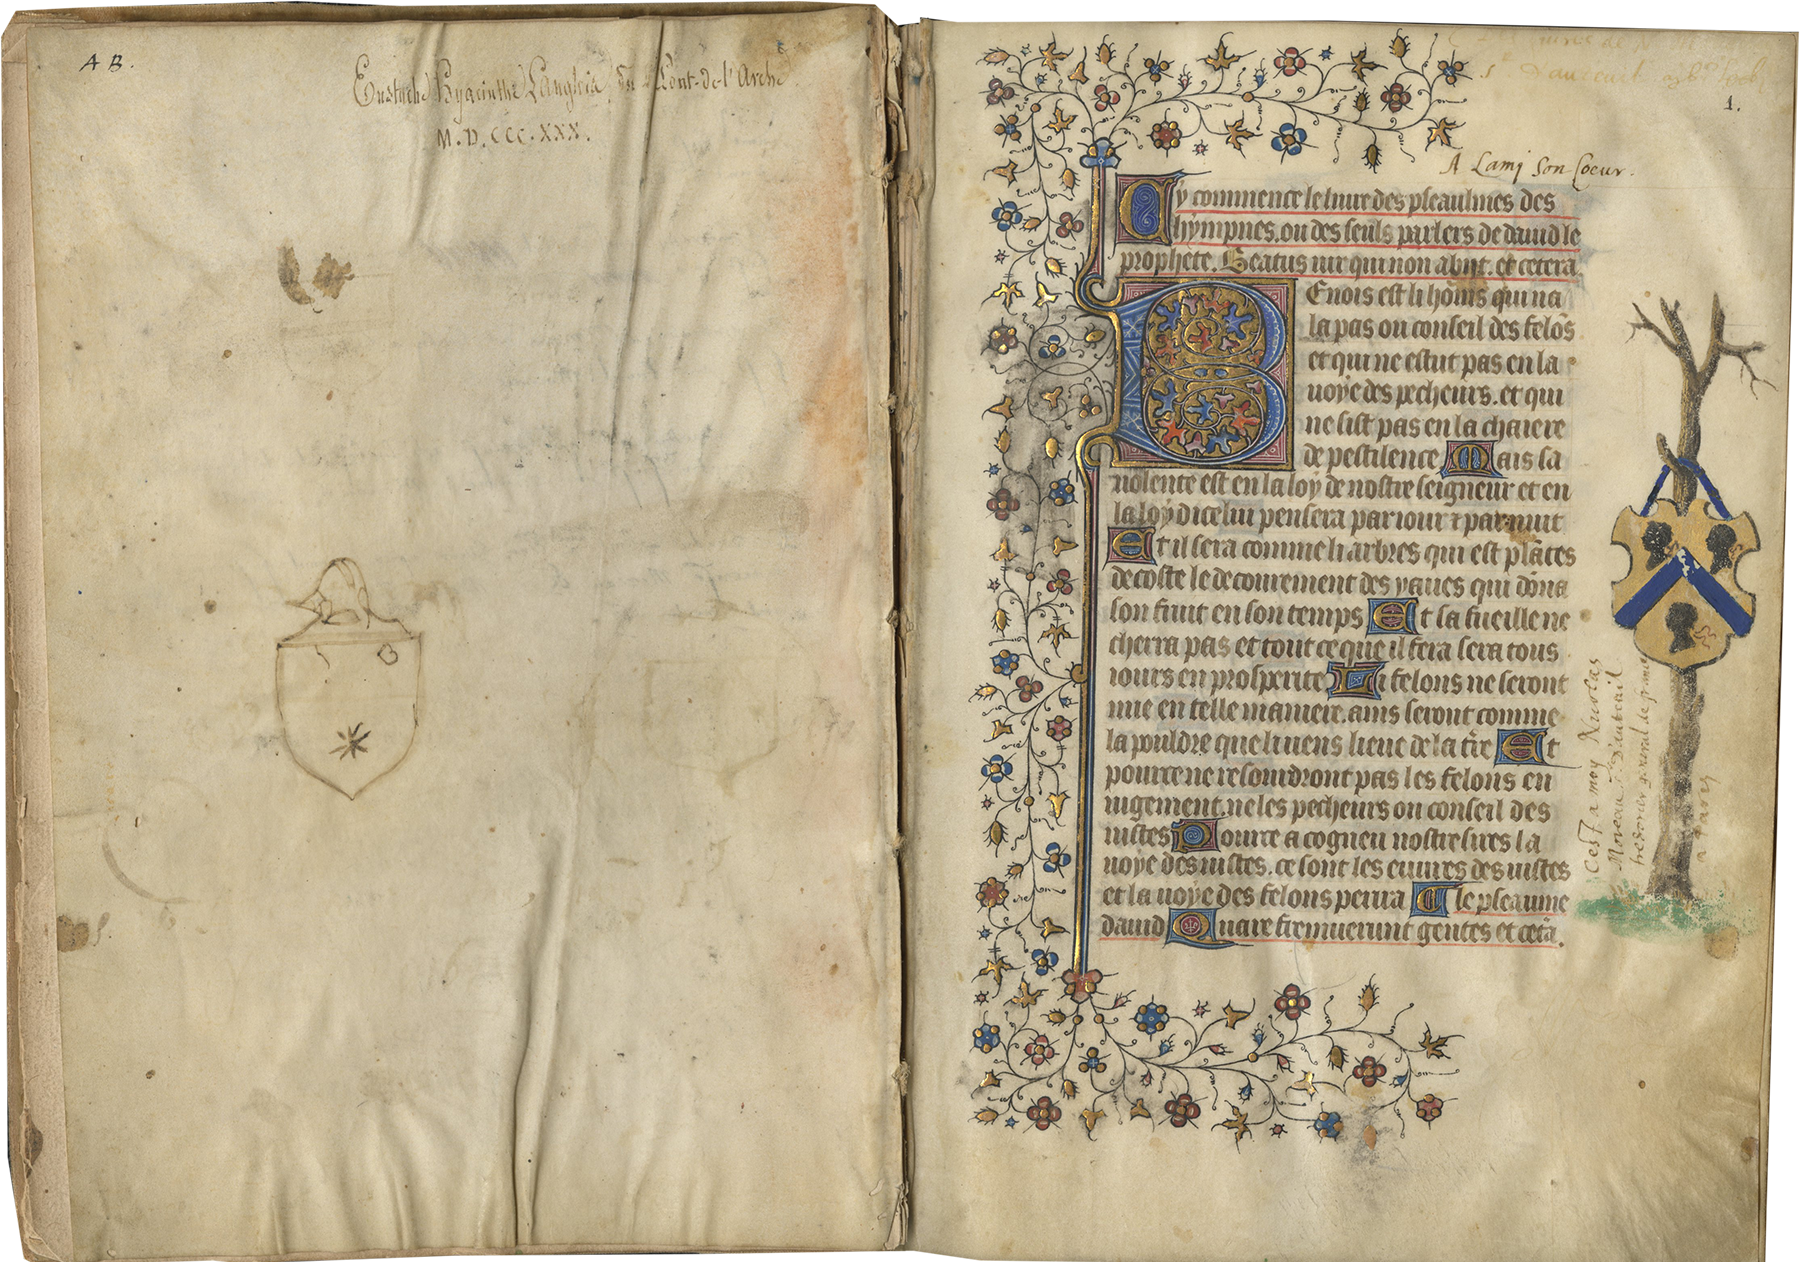 AB.
Eustache Hyacinthe Langlois, du Pont-de-l'Arche.
M.D.CCC.XXX.
1.
A Lamy son Coeur.
Cy commence le liure des pseaulmes des
hympnes. ou des seuls parlers de dauid le
prophete. Beatus uir qui non abijt. et cetera.
Benois est li homs qui na
la pas ou conseil des felos
et qui ne estut pas en la
uoye des pecheurs. et qui
ne sist pas en la chaiere
de pestilence Mais sa
uolente est en la loy de nostre seigneur et en
la loy dicelui pensera par iour et par nuit
Et il sera comme li arbres qui est plates
decoste le decourement des yaues qui dona
son fruit en son temps Et sa fueille ne
cherra pas et tout ce que il fera sera tous
iours en prosperite Li felons ne seront
mie en telle maniere. ains seront comme
la pouldre que li uens lieue de la tre Et
pource ne resoudront pas les felons en
iugement. ne les pecheurs ou conseil des
iustes Pource a cogneu nostre sires la
uoye des iustes. ce sont les euures des iustes
et la uoye des felons perira C le pseaume
dauid Quare fremuerunt gentes et cetera.
Cest a moy Nicolas
Moreau Sr d'auteuil
tresorier general de france
a Paris